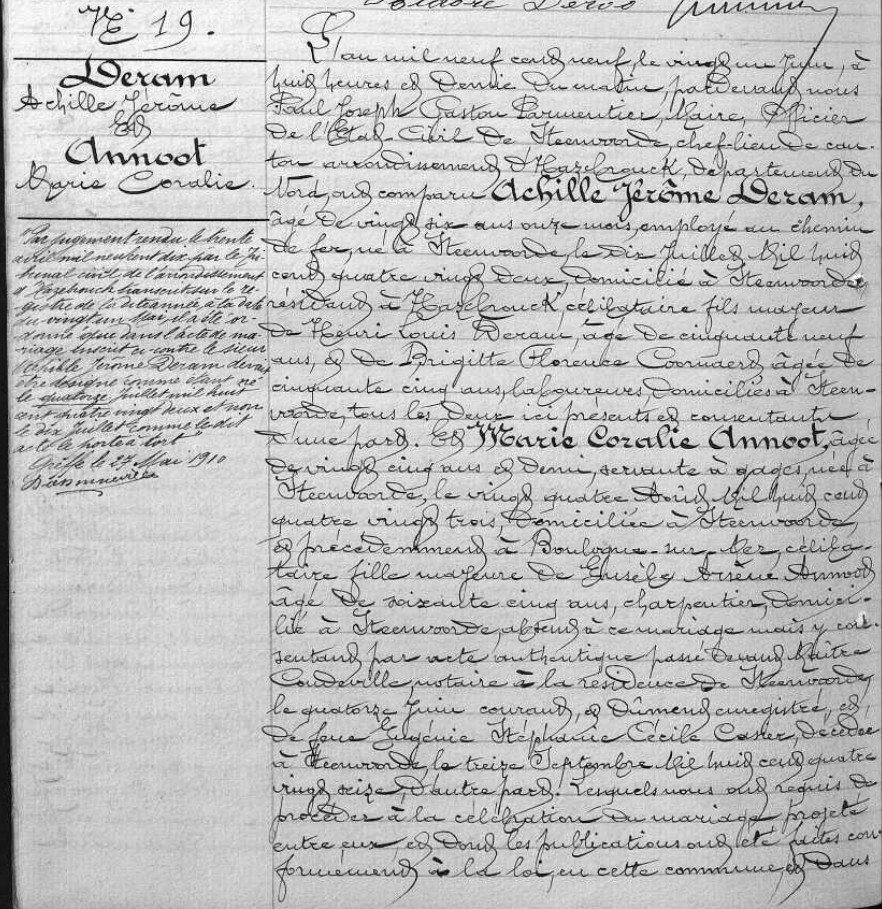 N° 19.
Deram
Achille Jérôme
Et
Annoot
Marie Coralie.
"Par jugement rendu le trente
avril mil neuf cent dix par le Tri-
bunal civil de l'arrondissement
d'Hazebrouck transcrit sur le re-
gistre de la dite année à la date
du vingt un Mai, il a été or-
donné que dans l'acte de ma-
riage inscrit ci-contre le sieur
Achille Jérôme Deram devrait
être désigné comme étant né
le quatorze Juillet mil huit
cent quatre vingt deux et non
le dix Juillet comme le dit
acte le porte à tort"
Greffe le 27 Mai 1910
L'an mil neuf cent neuf, le vingt un Juin, à
huit heures et demie du matin, pardevant nous
Paul Joseph Gaston Parmentier, Maire, Officier
de l'Etat-Civil de Steenvoorde, chef-lieu de can-
ton arrondissement d'Hazebrouck, département du
Nord, ont comparu Achille Jérôme Deram,
âgé de vingt six ans onze mois, employé au chemin
de fer, né à Steenvoorde, le dix Juillet Mil huit
cent quatre vingt deux, domicilié à Steenvoorde,
résidant à Hazebrouck célibataire fils majeur
de Henri Louis Deram, âgé de cinquante neuf
ans, et de Brigitte Florence Coornaert âgée de
cinquante cinq ans, laboureurs, domiciliés à Steen-
voorde, tous les deux ici présents et consentants
d'une part. Et Marie Coralie Annoot, âgée
de vingt cinq ans et demi, servante à gages, née à
Steenvoorde, le vingt quatre Août Mil huit cent
quatre vingt trois, domiciliée à Steenvoorde,
et précédemment à Boulogne-sur-Mer, céliba-
taire fille majeure de Eusèbe Arsène Annoot
âgé de soixante cinq ans, charpentier, domici-
lié à Steenvoorde, absent à ce mariage mais y con-
sentant par acte authentique passé devant Maître
Coudeville, notaire à la résidence de Steenvoorde,
le quatorze Juin courant, et dûment enregistré, et
de feue Eugénie Stéphanie Cécile décédée
à Steenvoorde, le treize Septembre Mil huit cent quatre
vingt seize, d'autre part. Lesquels nous ont requis de
procéder à la célébration du mariage projeté
entre eux, et dont les publications ont été faites con-
formément à la loi, en cette commune, et dans